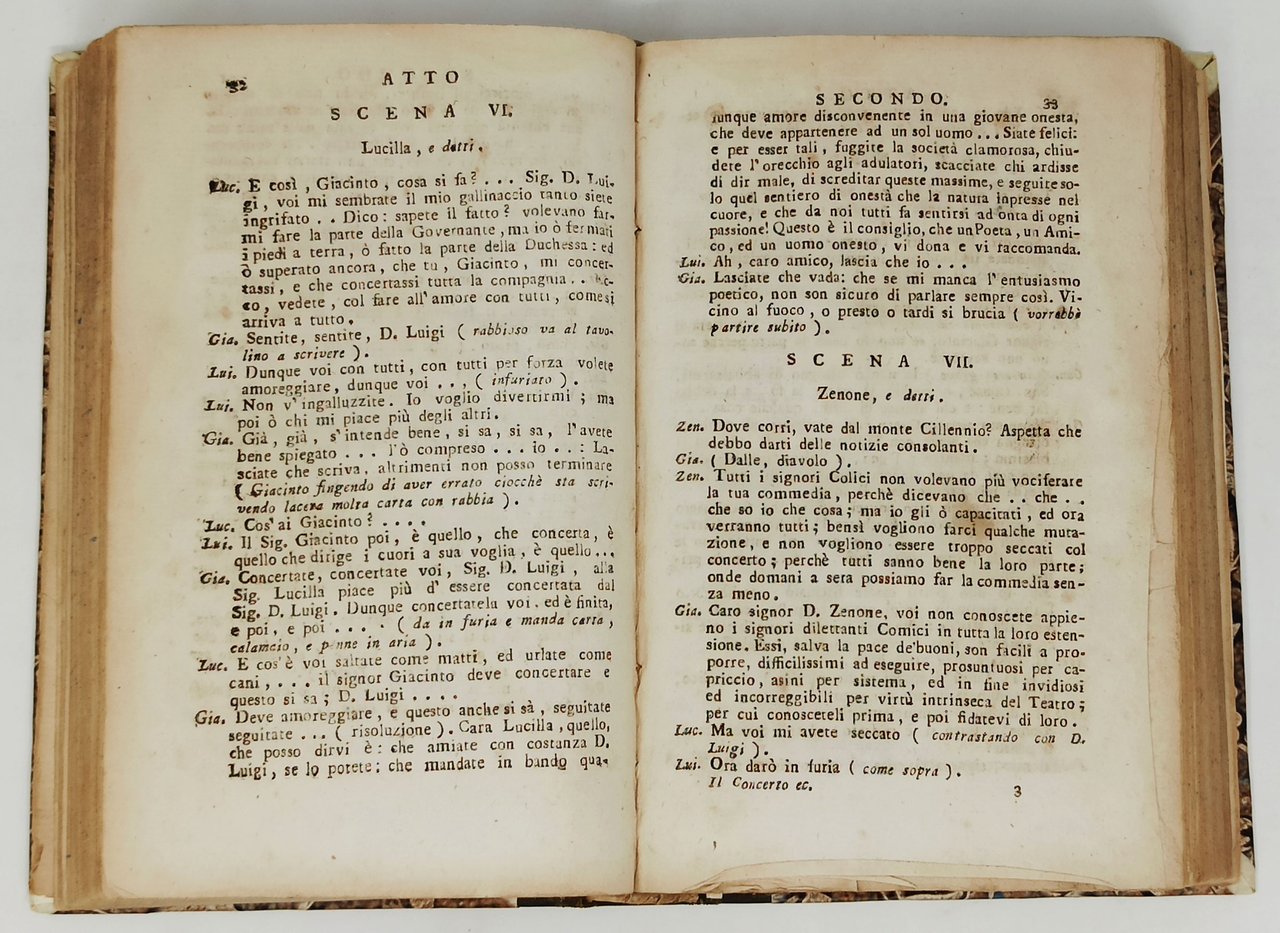 32
ATTO
SCENA VI.
Lucilla, e detti.
Luc. E così, Giacinto, cosa si fa? ... Sig. D. Lui-
gi, voi mi sembrate il mio gallinaccio tanto siete
ingrifato .. Dico: sapete il fatto? volevano far-
mi fare la parte della Governante, ma io ò fermati
i piedi a terra, ò fatto la parte della Duchessa: ed
ò superato ancora, che tu, Giacinto, mi concer-
tassi, e che concertassi tutta la compagnia. . Ec-
co, vedete, col fare all'amore con tutti, come si
arriva a tutto.
Gia. Sentite, sentite, D. Luigi ( rabbioso va al tavo-
lino a scrivere ).
Lui. Dunque voi con tutti, con tutti per forza volete
amoreggiare, dunque voi ..., ( infuriato ).
Lui. Non v'ingalluzzite. Io voglio divertirmi; ma
poi ò chi mi piace più degli altri.
Gia. Già, già, s'intende bene, si sa, si sa, l'avete
bene spiegato ... l'ò compreso ... io ..: La-
sciate che scriva, altrimenti non posso terminare
( Giacinto fingendo di aver errato ciocchè sta scri-
vendo lacera molta carta con rabbia ).
Luc. Cos'ai Giacinto? ....
Lui. Il Sig. Giacinto poi, è quello, che concerta, è
quello che dirige i cuori a sua voglia, è quello...
Gia. Concertate, concertate voi, Sig. D. Luigi, alla
Sig. Lucilla piace più d'essere concertata dal
Sig. D. Luigi. Dunque concertatela voi, ed è finita,
e poi, e poi .... ( da in furia e manda carta,
calamcio, e penne in aria ).
Luc. E cos'è voi saltate come matti, ed urlate come
cani, ... il signor Giacinto deve concertare e
questo si sa; D. Luigi ....
Gia. Deve amoreggiare, e questo anche si sà, seguitate
seguitate ... ( risoluzione ). Cara Lucilla, quello,
che posso dirvi è: che amiate con costanza D.
Luigi, se lo potete: che mandate in bando qua-
SECONDO.
33
lunque amore disconvenente in una giovane onesta,
che deve appartenere ad un sol uomo ... Siate felici:
e per esser tali, fuggite la società clamorosa, chiu-
dete l'orecchio agli adulatori, scacciate chi ardisse
di dir male, di screditar queste massime, e seguite so-
lo quel sentiero di onestà che la natura inpresse nel
cuore, e che da noi tutti fa sentirsi ad onta di ogni
passione! Questo è il consiglio, che un Poeta, un Ami-
co, ed un uomo onesto, vi dona e vi raccomanda.
Lui. Ah, caro amico, lascia che io ...
Gia. Lasciate che vada: che se mi manca l'entusiasmo
poetico, non son sicuro di parlare sempre così. Vi-
cino al fuoco, o presto o tardi si brucia ( vorrebbe
partire subito ).
SCENA VII.
Zenone, e detti.
Zen. Dove corri, vate dal monte Cillennio? Aspetta che
debbo darti delle notizie consolanti.
Gia. ( Dalle, diavolo ).
Zen. Tutti i signori Colici non volevano più vociferare
la tua commedia, perchè dicevano che .. che ..
che so io che cosa; ma io gli ò capacitati, ed ora
verranno tutti; bensì vogliono farci qualche muta-
zione, e non vogliono essere troppo seccati col
concerto; perchè tutti sanno bene la loro parte;
onde domani a sera possiamo far la commedia sen-
za meno.
Gia. Caro signor D. Zenone, voi non conoscete appie-
no i signori dilettanti Comici in tutta la loro esten-
sione. Essi, salva la pace de'buoni, son facili a pro-
porre, difficilissimi ad eseguire, prosuntuosi per ca-
priccio, asini per sistema, ed in fine invidiosi
ed incorreggibili per virtù intrinseca del Teatro;
per cui conosceteli prima, e poi fidatevi di loro.
Luc. Ma voi mi avete seccato ( contrastando con D.
Luigi ).
Lui. Ora darò in furia ( come sopra ).
Il Concerto ec.
3